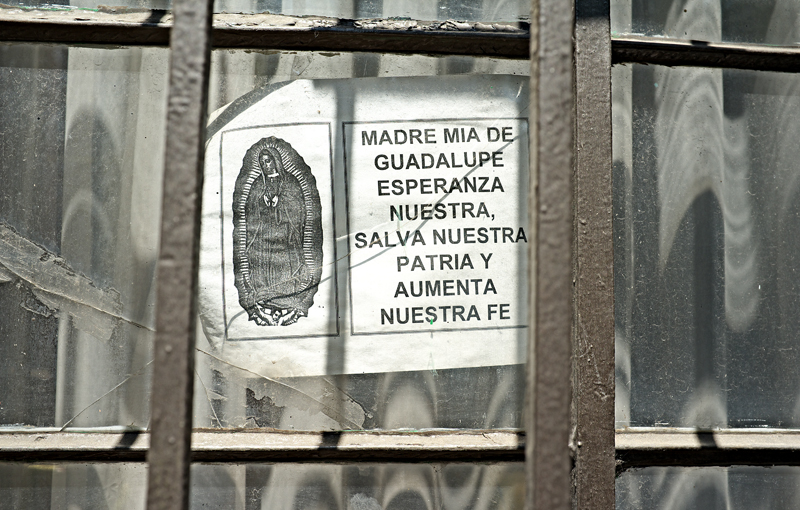 MADRE MIA DE
GUADALUPE
ESPERANZA
NUESTRA,
SALVA NUESTRA
PATRIA Y
AUMENTA
NUESTRA FE